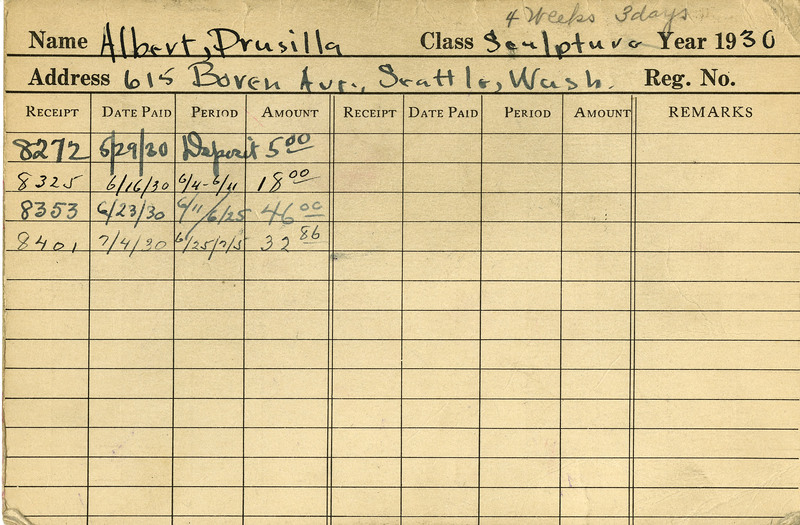 4 Weeks 3 days
Name Albert, Drusilla Class Sculpture Year 1930
Address 615 Boren Ave., Seattle, Wash. Reg. No.
RECEIPT DATE PAID PERIOD AMOUNT RECEIPT DATE PAID PERIOD AMOUNT REMARKS
8272 5/29/30 Deposit 5.00
8325 6/16/30 6/4-6/11 18.00
8353 6/23/30 6/11/6/25 46.00
8401 7/4/30 6/25/7/5 32.86